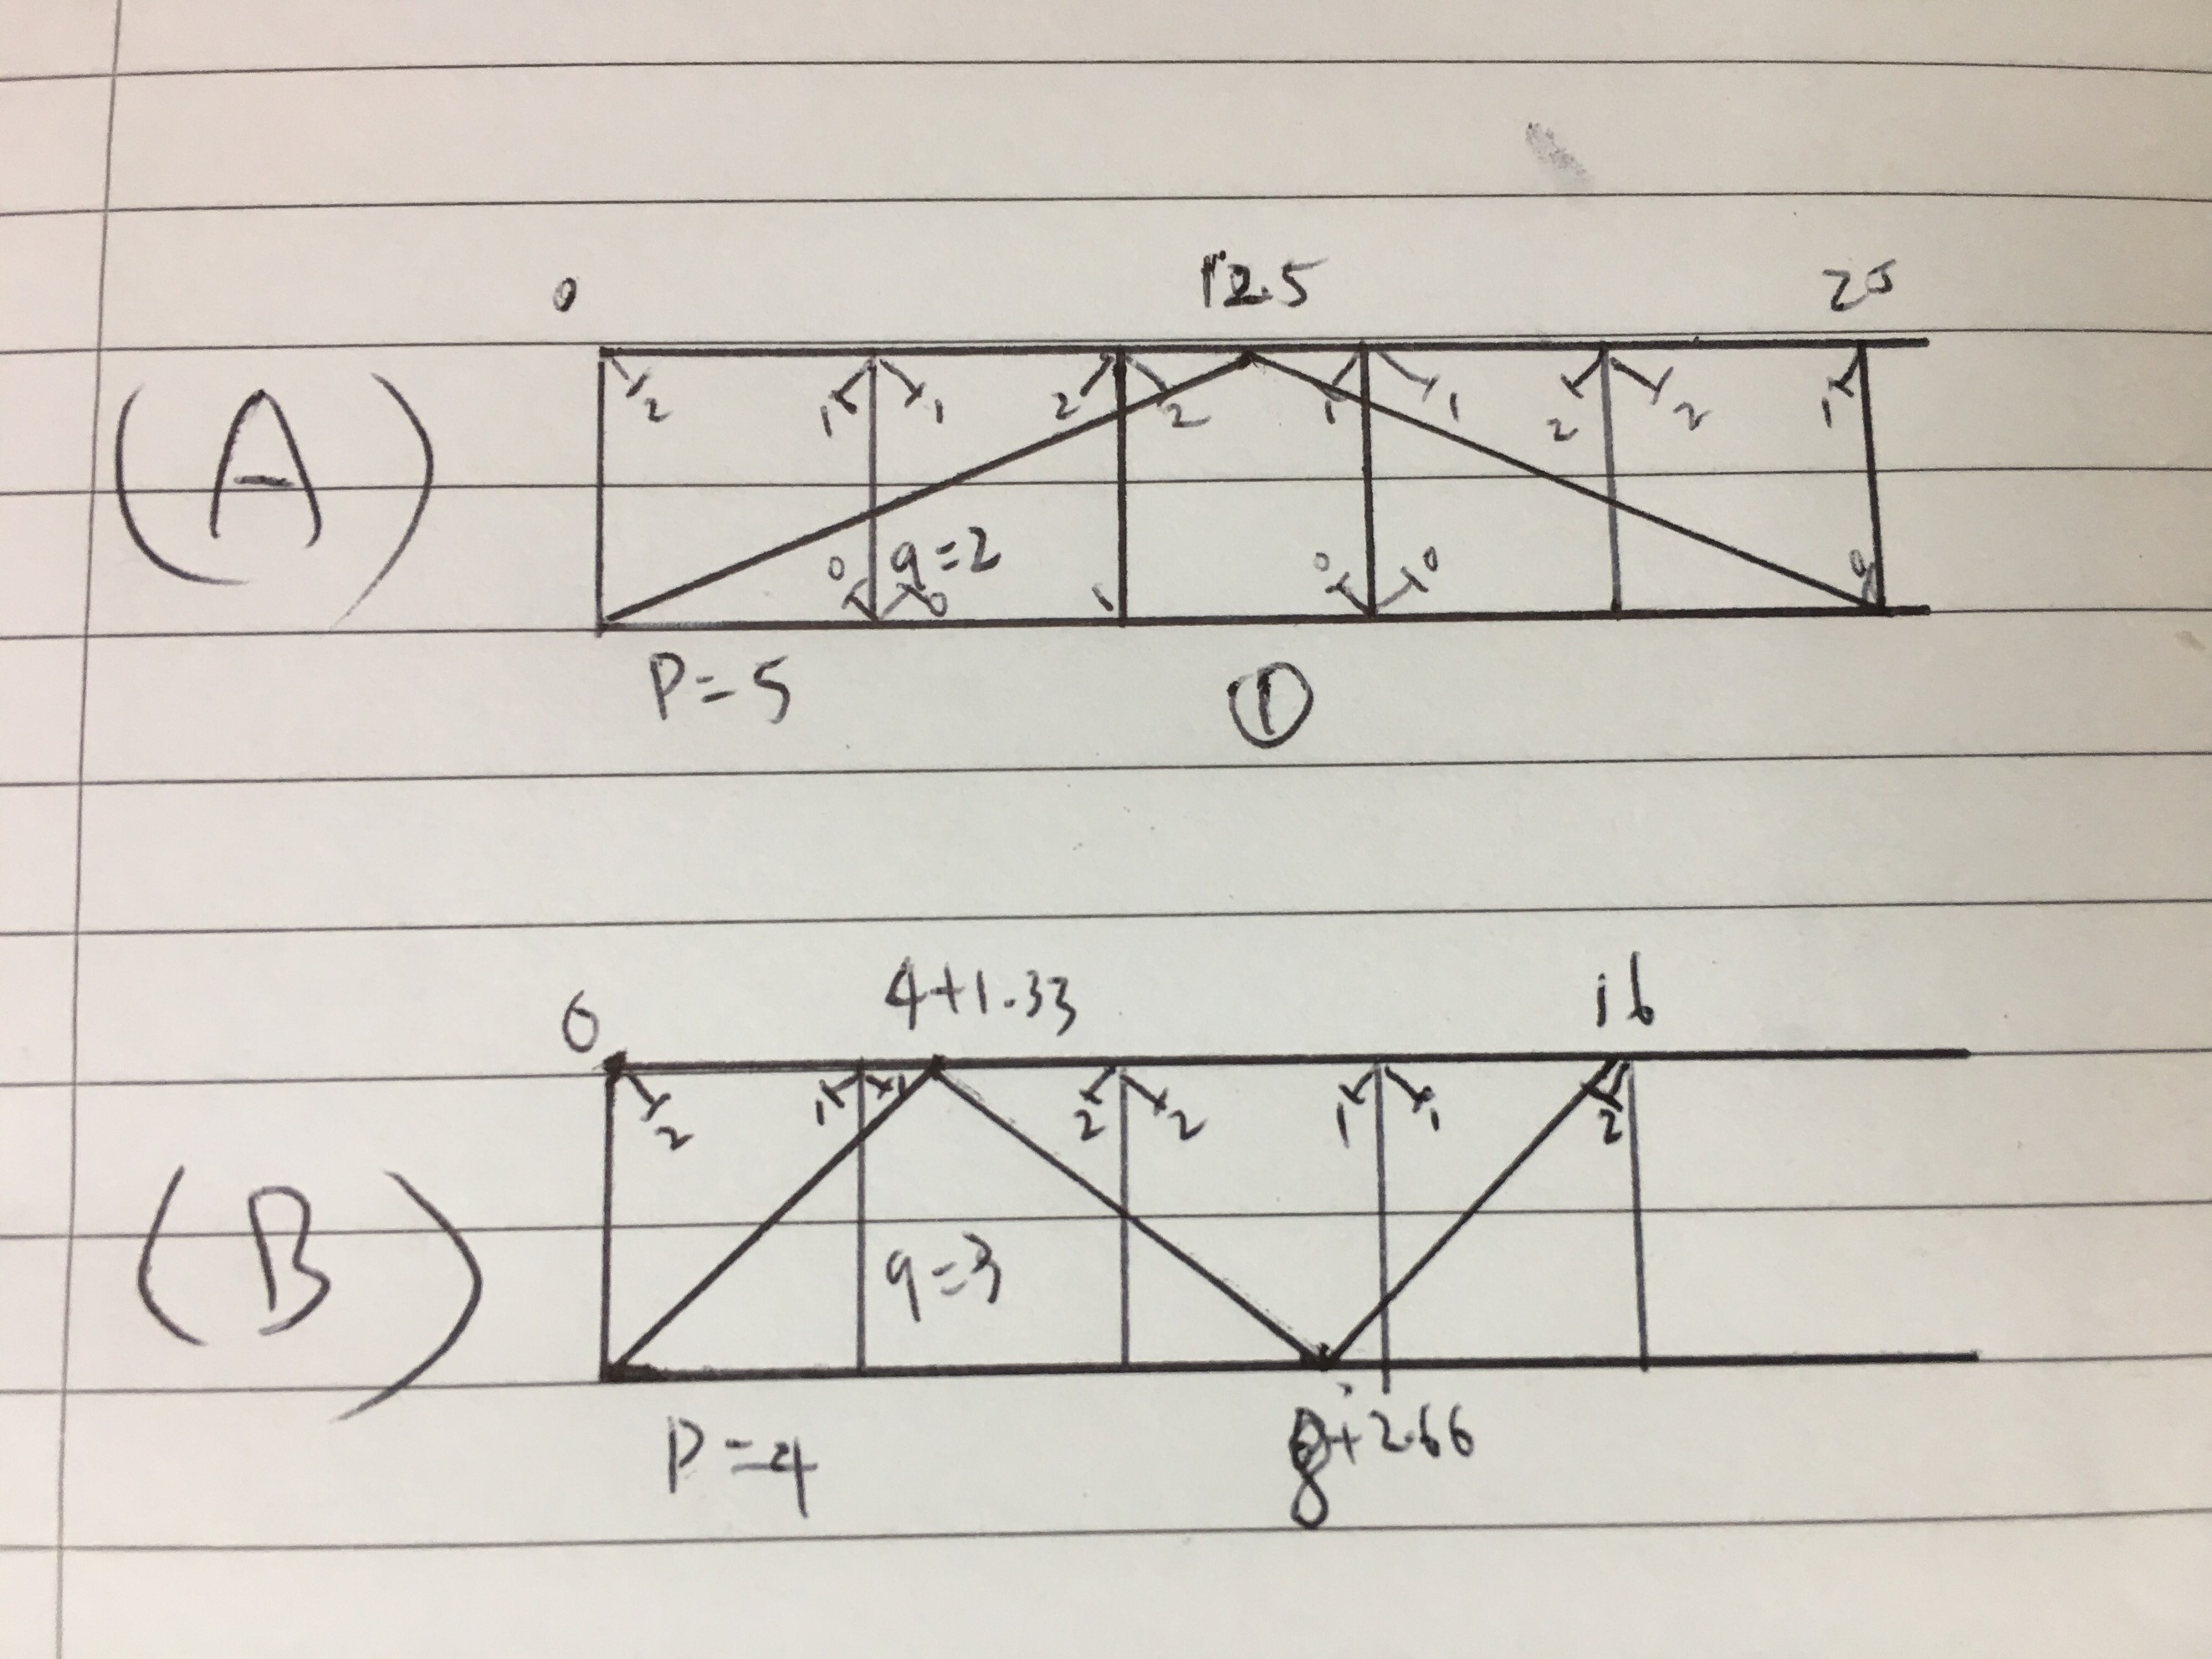 0 12.5 25
(A)
2 1 1 2 2 1 1 2 2 1
0 q=2 0 1 0 0
P=5 ①
0 4+1.33 16
2 1 1 2 2 1 1 2
(B)
q=3
P=4 8+2.66